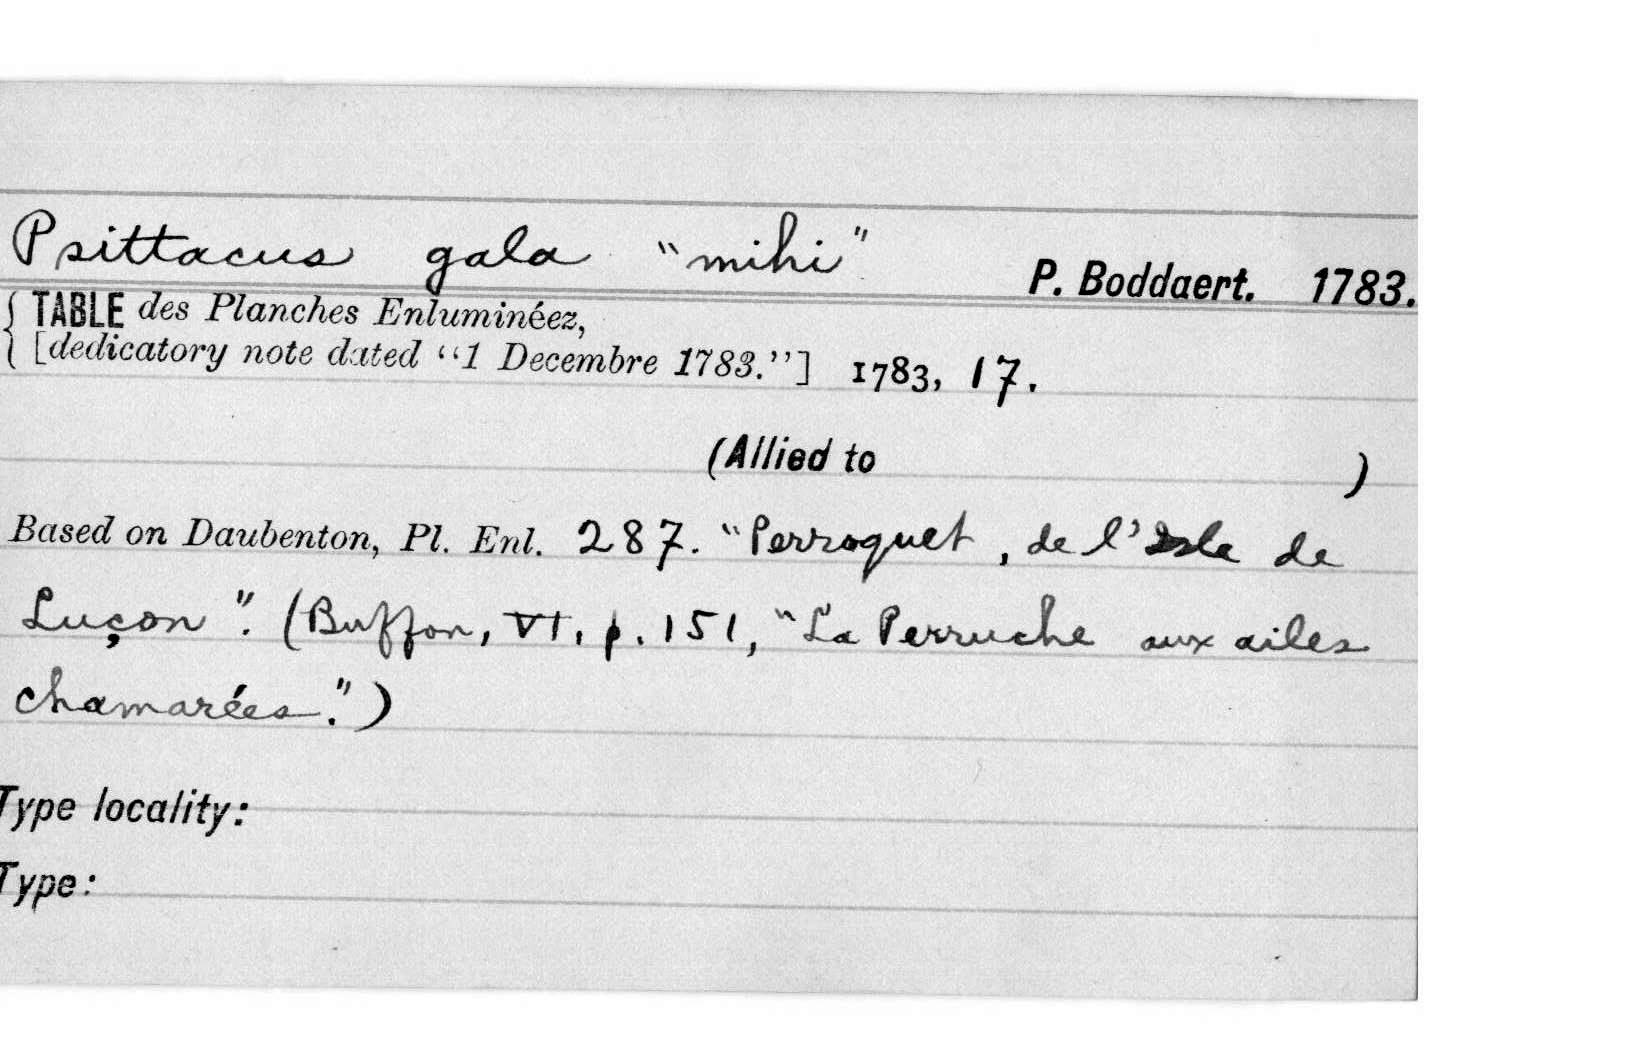 Psittacus gala "mihi"
P. Boddaert. 1783.
TABLE des Planches Enluminéez,
[dedicatory note dated "1 Decembre 1783."] 1783, 17.
(Allied to )
Based on Daubenton, Pl. Enl. 287. "Perroquet, de l'Isle de
Luçon". (Buffon, VI, p. 151, "La Perruche aux ailes
chamarées.")
Type locality:
Type: